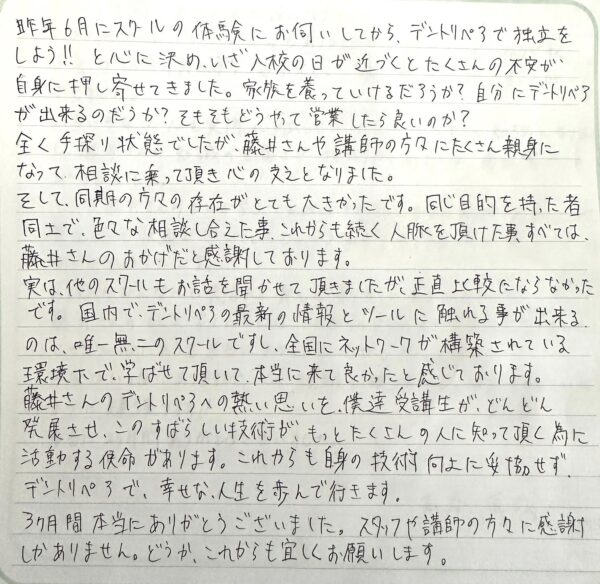 昨年6月にスクールの体験にお伺いしてから、デントリペアで独立を
しよう!! と心に決め、いざ入校の日が近づくとたくさんの不安が
自身に押し寄せてきました。家族を養っていけるだろうか?自分にデントリペア
が出来るのだろうか?そもそもどうやって営業したら良いのか?
全く手探り状態でしたが、藤井さんや講師の方々にたくさん親身に
なって、相談に乗って頂き心の支えとなりました。
そして、同期の方々の存在がとても大きかったです。同じ目的を持った者
同士で、色々な相談し合えた事、これからも続く人脈を頂けた事すべては、
藤井さんのおかげだと感謝しております。
実は、他のスクールもお話を聞かせて頂きましたが、正直比較にならなかった
です。国内で、デントリペアの最新の情報とツールに触れる事が出来る
のは、唯一無二のスクールですし、全国にネットワークが構築されている
環境下で、学ばせて頂いて、本当に来て良かったと感じております。
藤井さんのデントリペアへの熱い思いを、僕達受講生が、どんどん
発展させ、このすばらしい技術が、もっとたくさんの人に知って頂く為に
活動する使命があります。これからも自身の技術向上に妥協せず、
デントリペアで、幸せな人生を歩んで行きます。
3ヶ月間本当にありがとうございました。スタッフや講師の方々に感謝
しかありません。どうか、これからも宜しくお願いします。